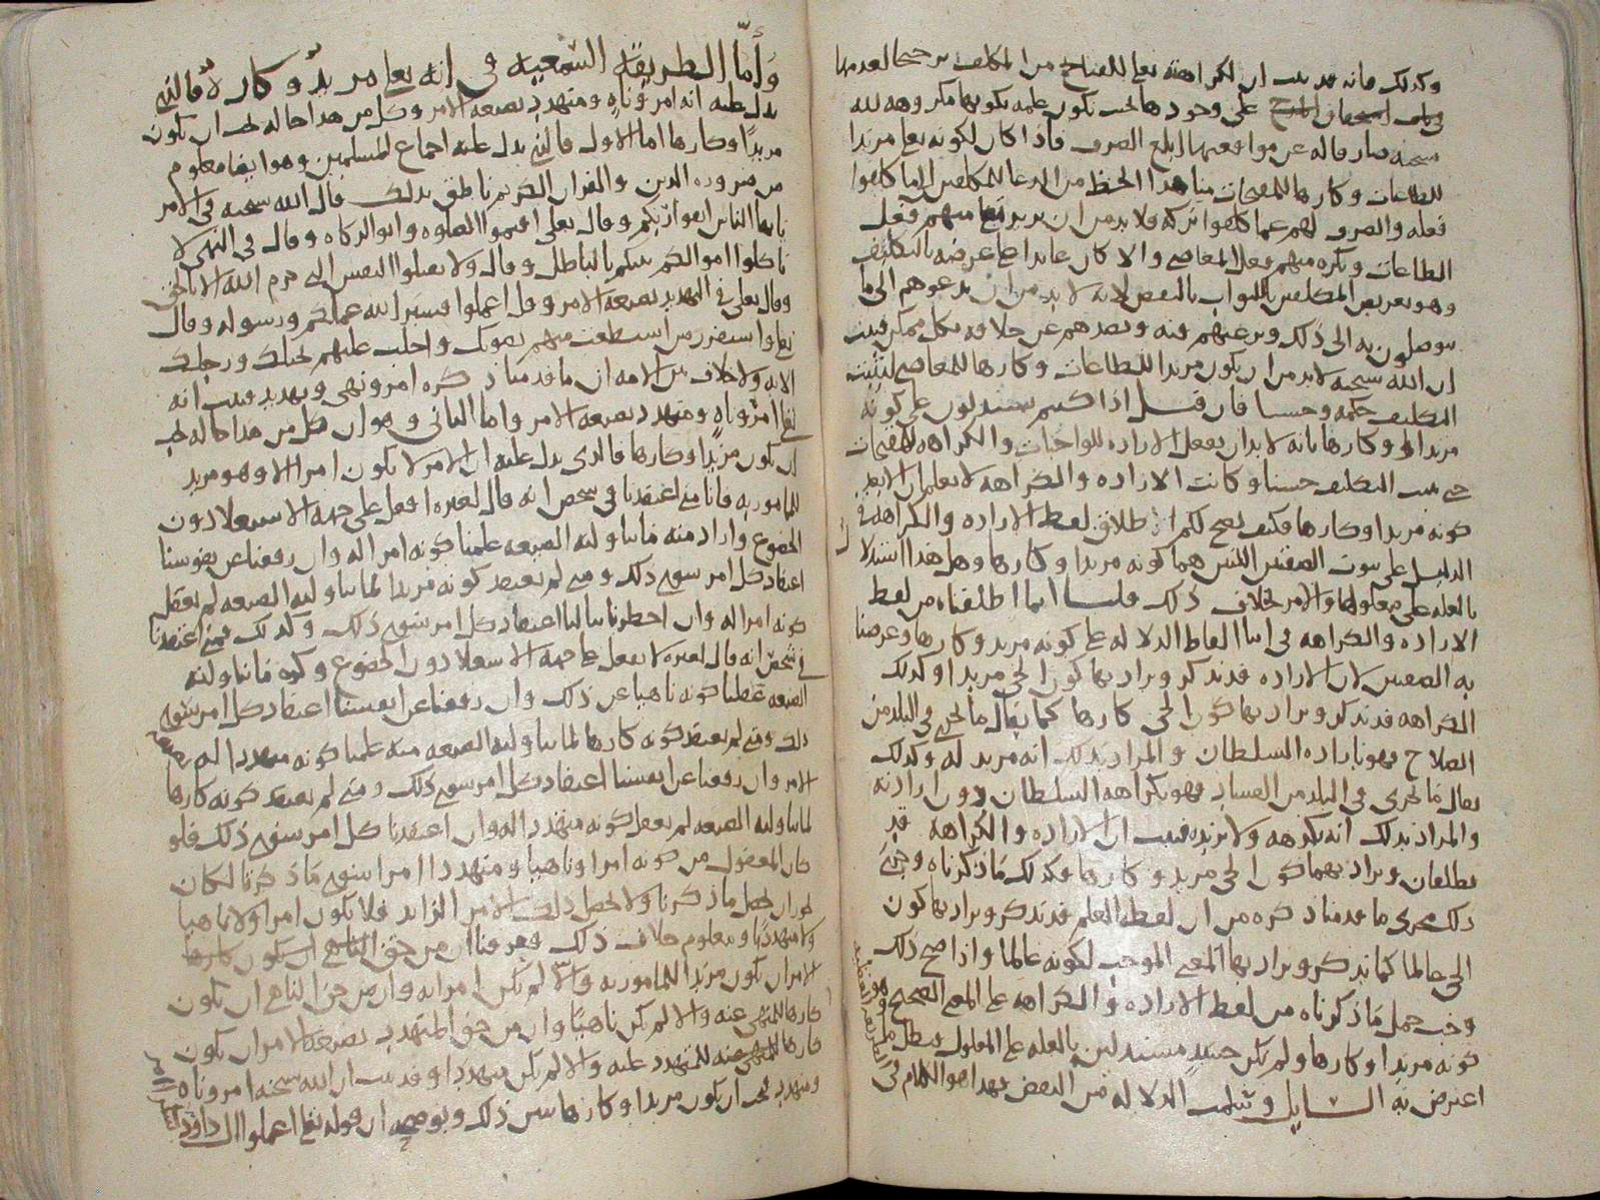 وكذلك فانه قد ثبت ان لكراهته تعلى للقبايح من المكلف ترجيحا لعدمها
على وجودها بحيث تكون علمه بكونها مكروهه لله
سبحنه صارفا له عن مواقعتها ابلغ الصرف فاذا كان لكونه تعلى مريدا
للطاعات وكارها للمقبحات مثل هذا الحظ من الدعا للمكلفين الى ما كلفوا
فعله والصرف لهم عما كلفوا تركه فلا بد من ان يريد تعلى منهم فعل
الطاعات ويكره منهم فعل المعاصي والا كان عايدا على غرضه بالتكليف
وهو تعريض المكلفين للثواب بالنقض لانه لا بد من ان يدعوهم الى ما
يتوصلون به الى ذلك ويرغبهم فيه ويصدهم عن خلافه بكل ممكن فثبت
ان الله سبحنه لا بد من ان يكون مريدا للطاعات وكارها للمعاصي ليثبت
التكليف حكمه وحسنا فان قيل اذا كنتم تستدلون على كونه
مريدا وكارها بانه لا بد ان يفعل الاراده للواجبات والكراهه للمقبحات
حتى يثبت التكليف حسنا وكانت الاراده والكراهه لا يعلمان الا بعد
كونه مريدا وكارها فكيف يصح لكم اطلاق لفظ الاراده والكراهه في
الدليل على ثبوت الصفتين اللتين هما كونه مريدا وكارها وهل هذا استدلال
بالعله على معلولها والامر بخلاف ذلك قلنا انما اطلقنا من لفظ
الاراده والكراهه في اثنا الفاظ الدلاله على كونه مريد وكارها وغرضنا
به الصفتين لان الاراده قد تذكر ويراد بها كون الحي مريدا وكذلك
الكراهه قد تذكر ويراد بها كون الحي كارها كما يقال ما يجري في البلد من
الصلاح فهو باراده السلطان والمراد بذلك انه مريد له وكذلك
يقال ما يجرى في البلد من الفساد فهو بكراهه السلطان دون ارادته
والمراد بذلك انه يكرهه ولا يريده فثبت ان الاراده والكراهه قد
يطلقان ويراد بهما كون الحي مريد وكارها وكذلك ما ذكرناه وجرى
ذلك مجرى ما قدمنا ذكره من ان لفظ العلم قد تذكر ويراد بها كون
الحي عالما كما تذكر ويراد بها المعنى الموجب لكونه عالما واذا صح ذلك
وجب حمل ما ذكرناه من لفظ الاراده والكراهه على المعنى الصحيح وهو
كونه مريدا وكارها ولم نكن حينئذ مستدلين بالعله على المعلول فبطل ما
اعترض به السايل وسلمت الدلاله من النقض فهذا هو الكلام في
وأما الطريقة السمعيه في انه تعلى مريدٌ وكارهٌ فالذي
يدل عليه انه امر وناهٍ ومتهدد بصيغه الامر وكل من هذا حاله يجب ان يكون
مريدًا وكارها اما الاول فالذي يدل عليه اجماع المسلمين وهو ايضا معلوم
من ضروره الدين والقران الكريم ناطق بذلك قال الله سبحنه في الامر
يا يها الناس اتقوا ربكم وقال تعلى اقيموا الصلوه واتوا الزكاه وقال في النهي لا
تاكلوا اموالكم بينكم بالباطل وقال ولا تقتلوا النفس التي حرم الله الا بالحق
وقال تعلى في التهديد بصيغه الامر وقل اعملوا فسيرى الله عملكم ورسوله وقال
تعلى واستفزز من استطعت منهم بصوتك واجلب عليهم بخيلك ورجلك
الايه ولا خلاف بين الامه ان ما قدمنا ذكره امر ونهي وتهديد فثبت انه
تعلى امر وناهٍ ومتهدد بصيغه الامر واما الثاني وهو ان كل من هذا حاله يجب
ان يكون مريدًا وكارها فالذي يدل عليه ان الامر لا يكون امرا الا وهو مريد
للمامور به فانا متى اعتقدنا في شخص انه قال لغيره افعل على جهه الاستعلا دون
الخضوع واراد منه ما تناولته الصيغه علمنا كونه امرا له وان رفعنا عن نفوسنا
اعتقاد كل امر سوى ذلك ومتى لم نعتقد كونه مريدا لما تناولته الصيغه لم نعقل
كونه امرا له وان احطرنا ببالنا اعتقاد كل امر سوى ذلك وكذلك فمتى اعتقدنا
في شخص انه قال لغيره لا تفعل على جهه الاستعلا دون الخضوع وكره ما تناولته
الصيغه عقلنا كونه ناهيا عن ذلك وان رفعنا عن انفسنا اعتقاد كل امر سوى
ذلك ومتى لم نعتقد كونه كارها لما تناولته الصيغه منه علمنا كونه متهددا له بصيغه
الامر وان رفعنا عن انفسنا اعتقاد كل امر سوى ذلك ومتى لم نعتقد كونه كارها
لما تناولته الصيغه لم نعقل كونه متهددا له وان اعتقدنا كل امر سوى ذلك فلو
كان المعقول من كونه امرا وناهيا ومتهددا امرا سوى ما ذكرنا لكان
يجوز ان يحصل ما ذكرنا ولا يحصل ذلك الامر الزايد فلا يكون امرا ولا ناهيا
ولا متهددًا ومعلوم خلاف ذلك فعرفنا ان من حق
الامر ان يكون مريدا للمامور به والّا لم يكن امرا به وان من حق الناهي ان يكون
كارها للمنهي عنه والا لم يكن ناهيًا وان من حق المتهدد بصيغه الامر ان يكون
كارها للمتهدد عليه والا لم يكن متهددا وقد ثبت ان الله سبحنه امر وناه
ومتهدد فيجب ان يكون مريدا وكارها يبين ذلك ويوضحه ان قوله تعلى اعملوا ال داوود